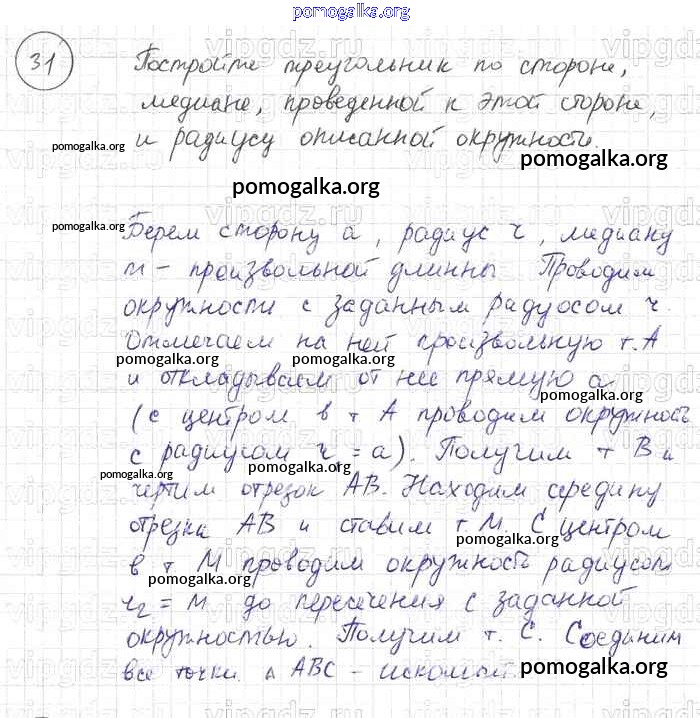 pomogalka.org
31
Постройте треугольник по стороне,
медиане, проведенной к этой стороне,
pomogalka.org и радиусу описанной окружности.
pomogalka.org
pomogalka.org
pomogalka.org
Берем сторону a, радиус r, медиану
m - произвольной длинны. Проводим
окружности с заданным радуосом r.
Отмечаем на ней произвольную т. А
pomogalka.org pomogalka.org
и откладываем от нее прямую a
pomogalka.org
(с центром в т А проводим окружность
с радиусом r = a). Получим т В и
pomogalka.org
pomogalka.org
чертим отрезок АВ. Находим середину
отрезка АВ и ставим т. М. С центром
pomogalka.org
в т М проводим окружность радиусом
pomogalka.org
r2 = м до пересечения с заданной
окружностью. Получим т. С. Соединим
все точки. АВС - искомый.
pomogalka.org